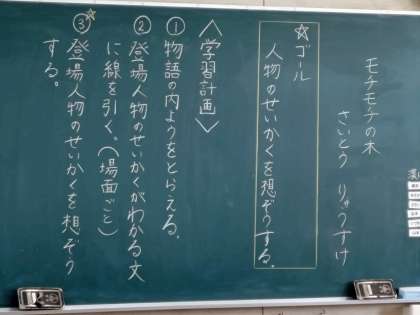 モチモチの木
さいとう りゅうすけ
☆ゴール
人物のせいかくを想ぞうする。
〈学習計画〉
①物語の内ようをとらえる。
②登場人物のせいかくがわかる文
に線を引く。(場面ごと)
☆③登場人物のせいかくを想ぞう
する。